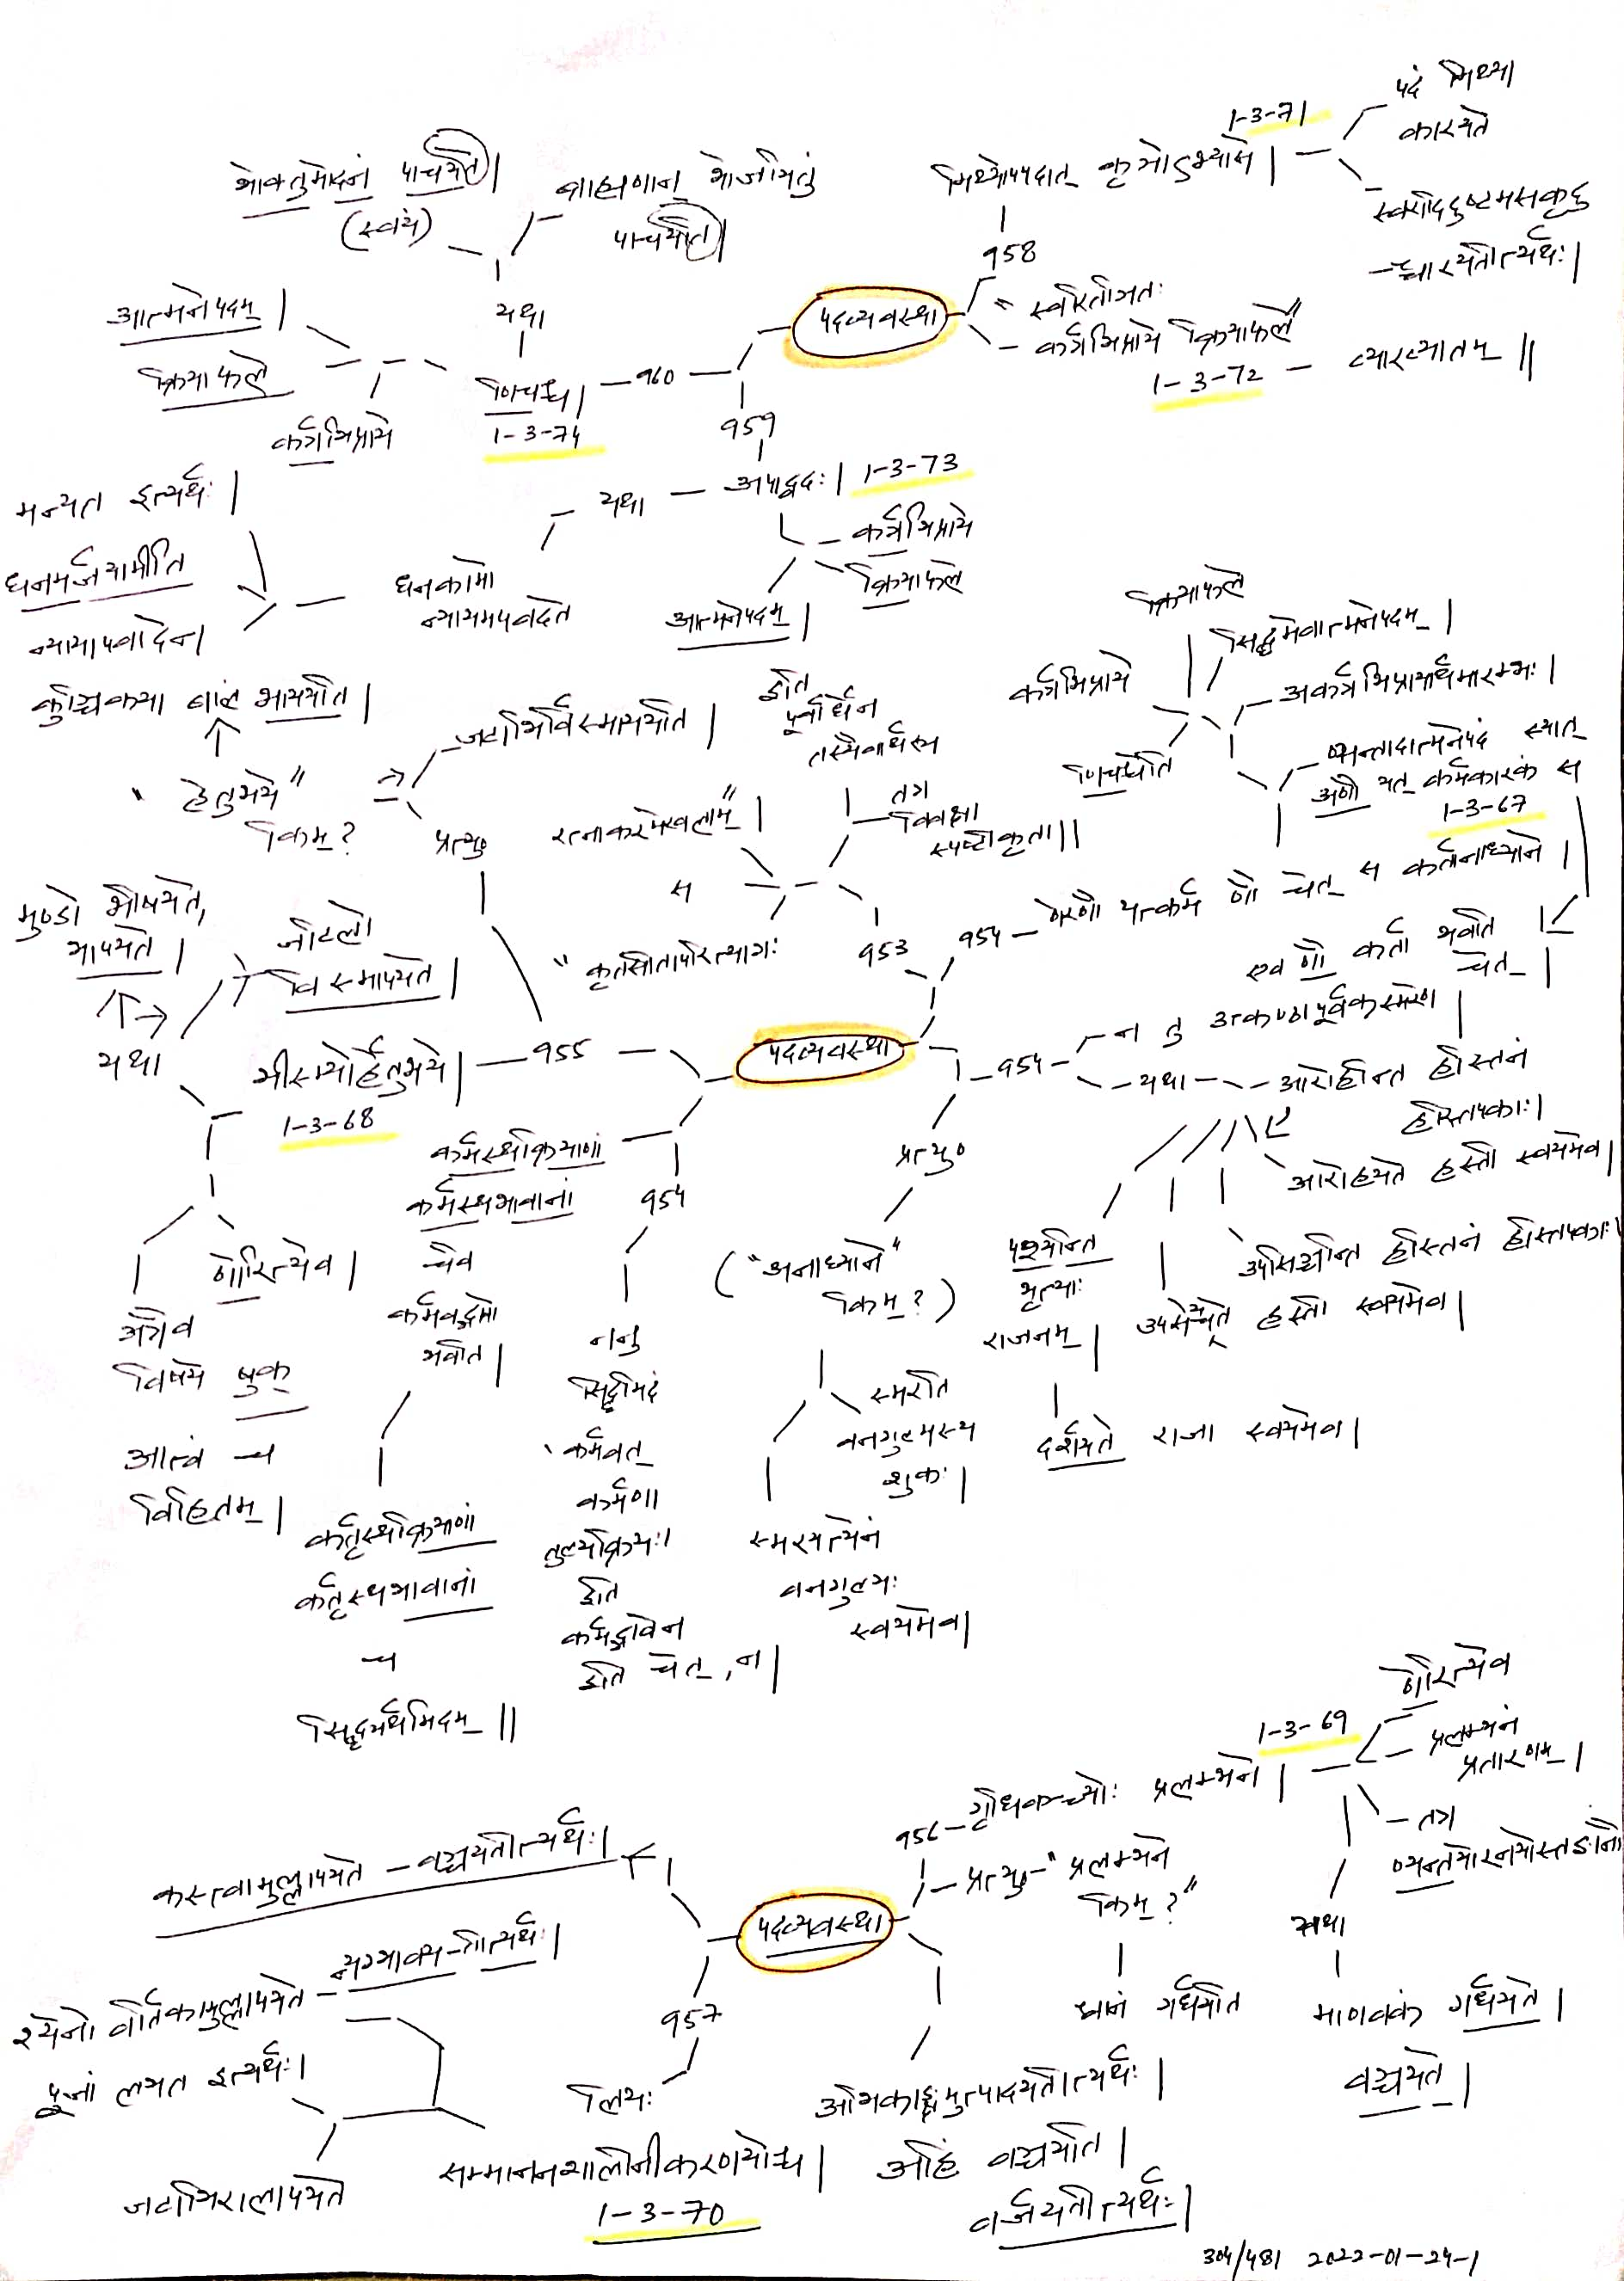 1-3-71
पदं मिथ्या
कारयते
मिथ्योपपदात् कृञोऽभ्यासे |
स्वरादिदुष्टमसकृदु
च्चारयतीत्यर्थः |
958
भोक्तुमोदनं पाचयते |
(स्वयं)
ब्राह्मणान् भोजयितुं
पाचयति |
यथा
आत्मनेपदम् |
क्रियाफले
कर्त्रभिप्राये
णिचश्च |
1-3-74
960
पदव्यवस्था
" स्वरितञितः
कर्त्रभिप्राये क्रियाफले"
1-3-72 - व्याख्यातम् ||
959
यथा - अपाद्वदः | 1-3-73
कर्त्रभिप्राये
क्रियाफले
आत्मनेपदम् |
धनकामो
न्यायमपवदते
मन्यत इत्यर्थः |
धनमर्जयामीति
न्यायापवादेन |
कुञ्चिकया बालं भाययति |
" हेतुभये"
किम् ?
जटाभिर्विस्माययति |
प्रत्यु०
इति
पूर्वार्धेन
तस्यैवार्थस्य
तत्र
विवक्षा
स्पष्टीकृता ||
रत्नाकरमेखलाम्" |
स
" कृतसीतापरित्यागः
953
क्रियाफले
सिद्धमेवात्मनेपदम् |
कर्त्रभिप्राये
अकर्त्रभिप्रायार्थमारम्भः |
णिचश्चेति
ण्यन्तादात्मनेपदं स्यात्
अणौ यत् कर्मकारकं स
1-3-67
954 - णेरणौ यत्कर्म णौ चेत् स कर्तानाध्याने |
एव णौ कर्ता भवति
चेत् |
मुण्डो भीषयते,
भापयते |
जटिलो
विस्मापयते |
यथा
भीस्म्योर्हेतुभये | - 955
1-3-68
पदव्यवस्था
954
न तु उत्कण्ठापूर्वकस्मरणे
यथा - आरोहन्ति हस्तिनं
हस्तिपकाः |
आरोहयते हस्ती स्वयमेव |
उपसिञ्चन्ति हस्तिनं हस्तिपकाः |
उपसेचयते हस्ती स्वयमेव |
पश्यन्ति
भृत्याः
राजनम् |
दर्शयते राजा स्वयमेव |
प्रत्यु०
("अनाध्याने"
किम् ? )
स्मरति
वनगुल्मस्य
शुकः |
स्मरयत्येनं
वनगुल्मः
स्वयमेव |
कर्मस्थक्रियाणां
कर्मस्थभावानां
चैव
कर्मवद्भावो
भवति |
954
ननु
सिद्धमिदं
'कर्मवत्
कर्मणा
तुल्यक्रियः |
इति
कर्मवद्भावेन
इति चेत् , न |
कर्तृस्थक्रियाणां
कर्तृस्थभावानां
च
सिद्ध्यर्थमिदम् ||
णेरित्येव |
अत्रैव
विषये षुक्
आत्वं च
विहितम् |
1-3-69
956 - गृधिवञ्च्योः प्रलम्भने |
णेरित्येव
प्रलम्भनं
प्रतारणम् |
तत्र
ण्यन्तयोरनयोस्तङानौ
यथा
माणवकं गर्धयते |
वञ्चयते |
प्रत्यु० - "प्रलम्भने
किम् ?"
श्वानं गर्धयति
अभिकाङ्क्षामुत्पादयतीत्यर्थः |
अहिं वञ्चयति |
वर्जयतीत्यर्थः |
पदव्यवस्था
कस्त्वामुल्लापयते - वञ्चयतीत्यर्थः |
श्येनो वर्तिकामुल्लापयते - न्यग्भावयतीत्यर्थः |
पूजां लभत इत्यर्थः |
जटाभिरालापयते
957
लियः
सम्माननशालीनीकरणयोश्च |
1-3-70
304/481 2022-01-24-1